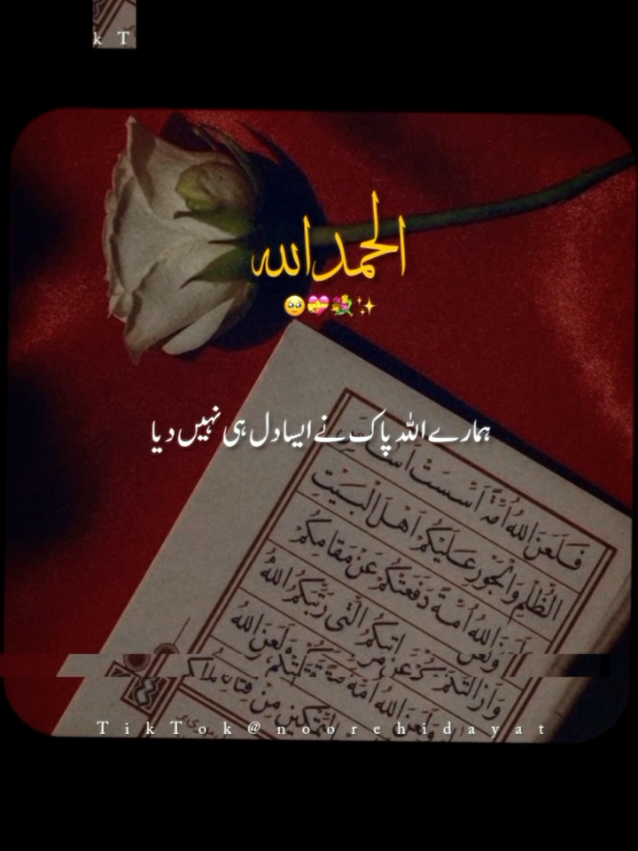 k T
الحمدالله
🥹💝💐✨
ہمارے اللہ پاک نے ایسا دل ہی نہیں دیا
فَلَعَنَ اللهُ اُمَّةً اَسَّسَتْ اَسَاسَ
الظُّلْمِ وَالْجَوْرِ عَلَيْكُمْ اَهْلَ الْبَيْتِ
وَلَعَنَ اللهُ اُمَّةً دَفَعَتْكُمْ عَنْ مَقامِكُمْ
وَاَزالَتْكُمْ عَنْ مَراتِبِكُمُ الَّتى رَتَّبَكُمُ اللهُ
TikTok@noorehidayat